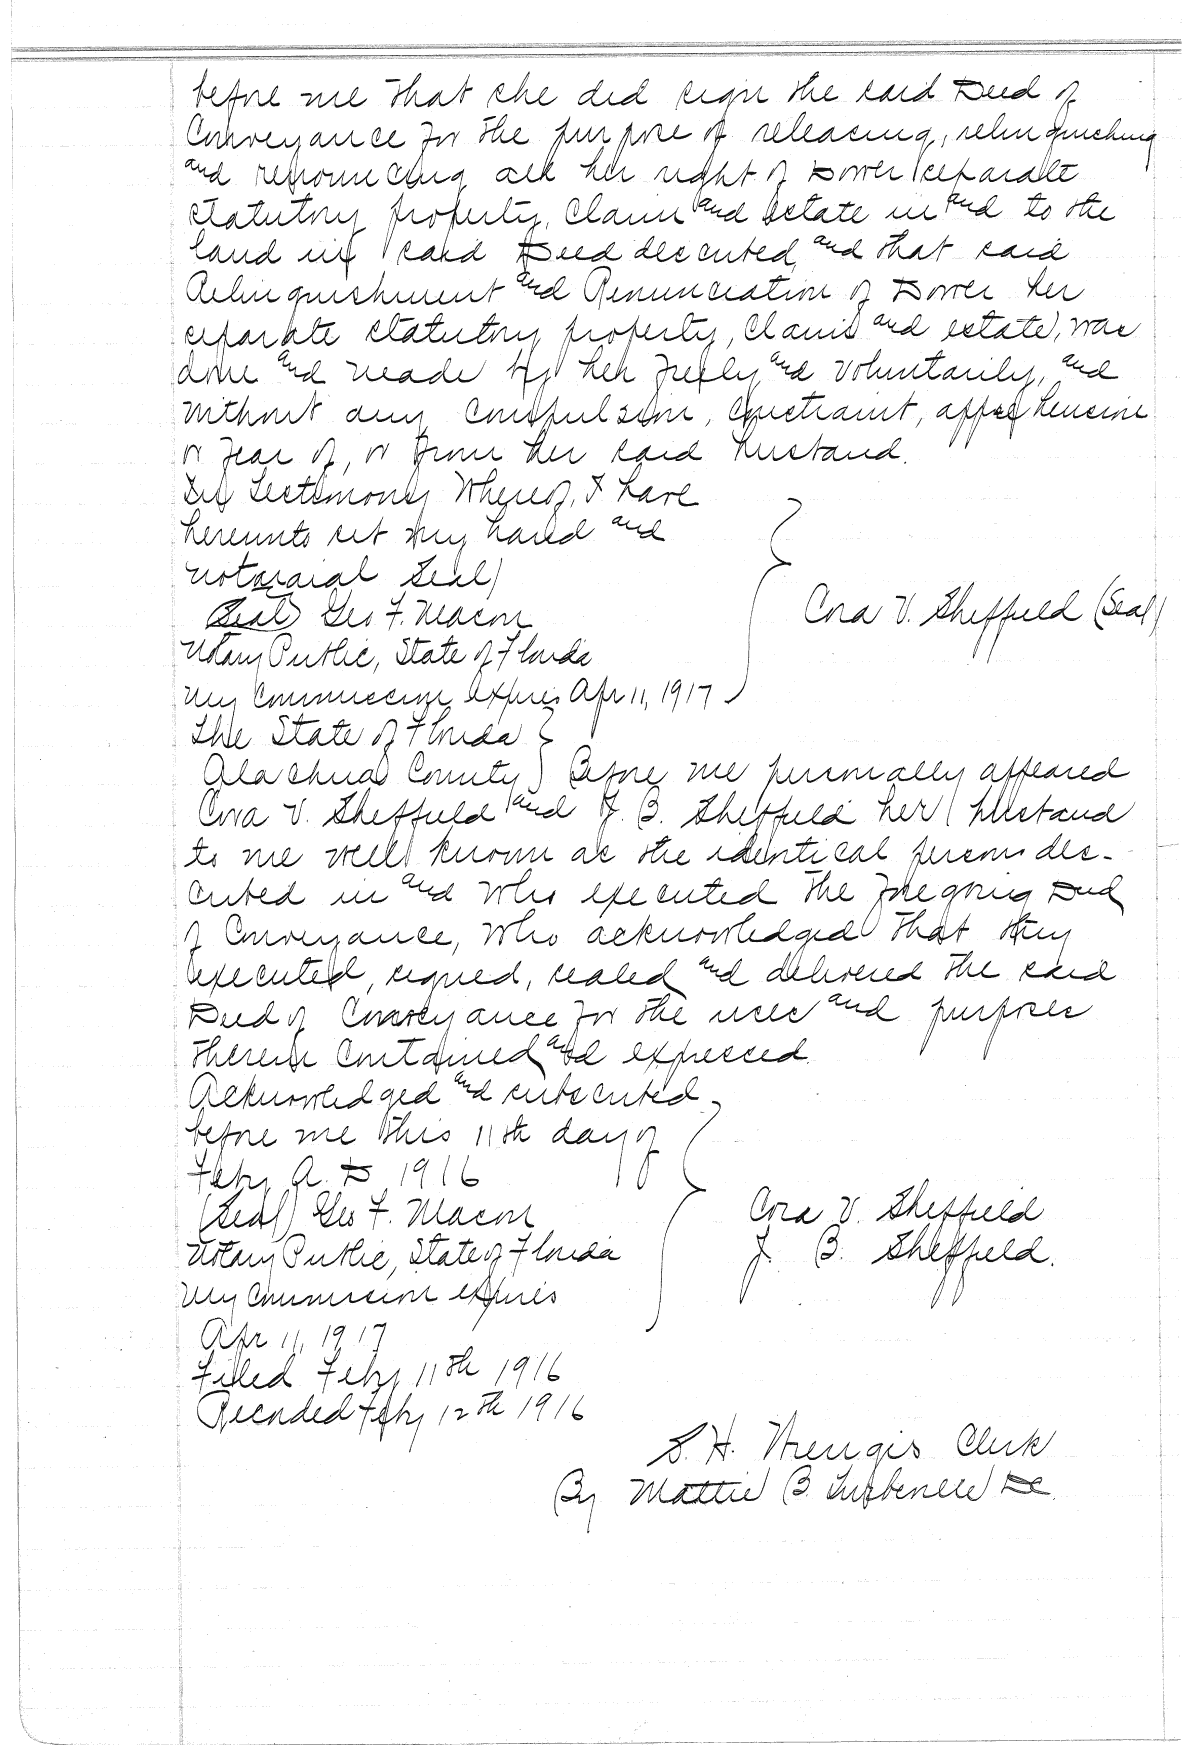 before me that she did sign the said Deed of
Conveyance for the purpose of releasing, relinquishing
and renouncing all her right of Dower separate
statutory property, claim and estate in and to the
land in said Deed descuted, and that said
Relinquishment and Renunciation of Dower her
separate statutory property, claim and estate, was
done and made by her freely and voluntarily, and
without any compulsion, constraint, apprehension
or fear of, or from her said husband.
In Testimony Whereof, I have
hereunto set my hand and
notarial Seal)
(Seal) Geo F. Macon
Cora V. Sheffield (Seal)
Notary Public, State of Florida
My Commission expires Apr 11, 1917
The State of Florida
Alachua County } Before me personally appeared
Cora V. Sheffield and J. B. Sheffield her husband
to me well known as the identical persons des-
cuted in and who executed the foregoing Deed
of Conveyance, who acknowledged that they
executed, signed, sealed and delivered the said
Deed of Conveyance for the uses and purposes
therein contained and expressed.
Acknowledged and subscuted
before me this 11th day of
Feby A. D 1916
(Seal) Geo F. Macon
Cora V. Sheffield
Notary Public, State of Florida
J. B. Sheffield.
My Commission expires
Apr 11, 1917
Filed Feby 11th 1916
Recorded Feby 12th 1916
S. H. Clerk
By Mattie B. DC.